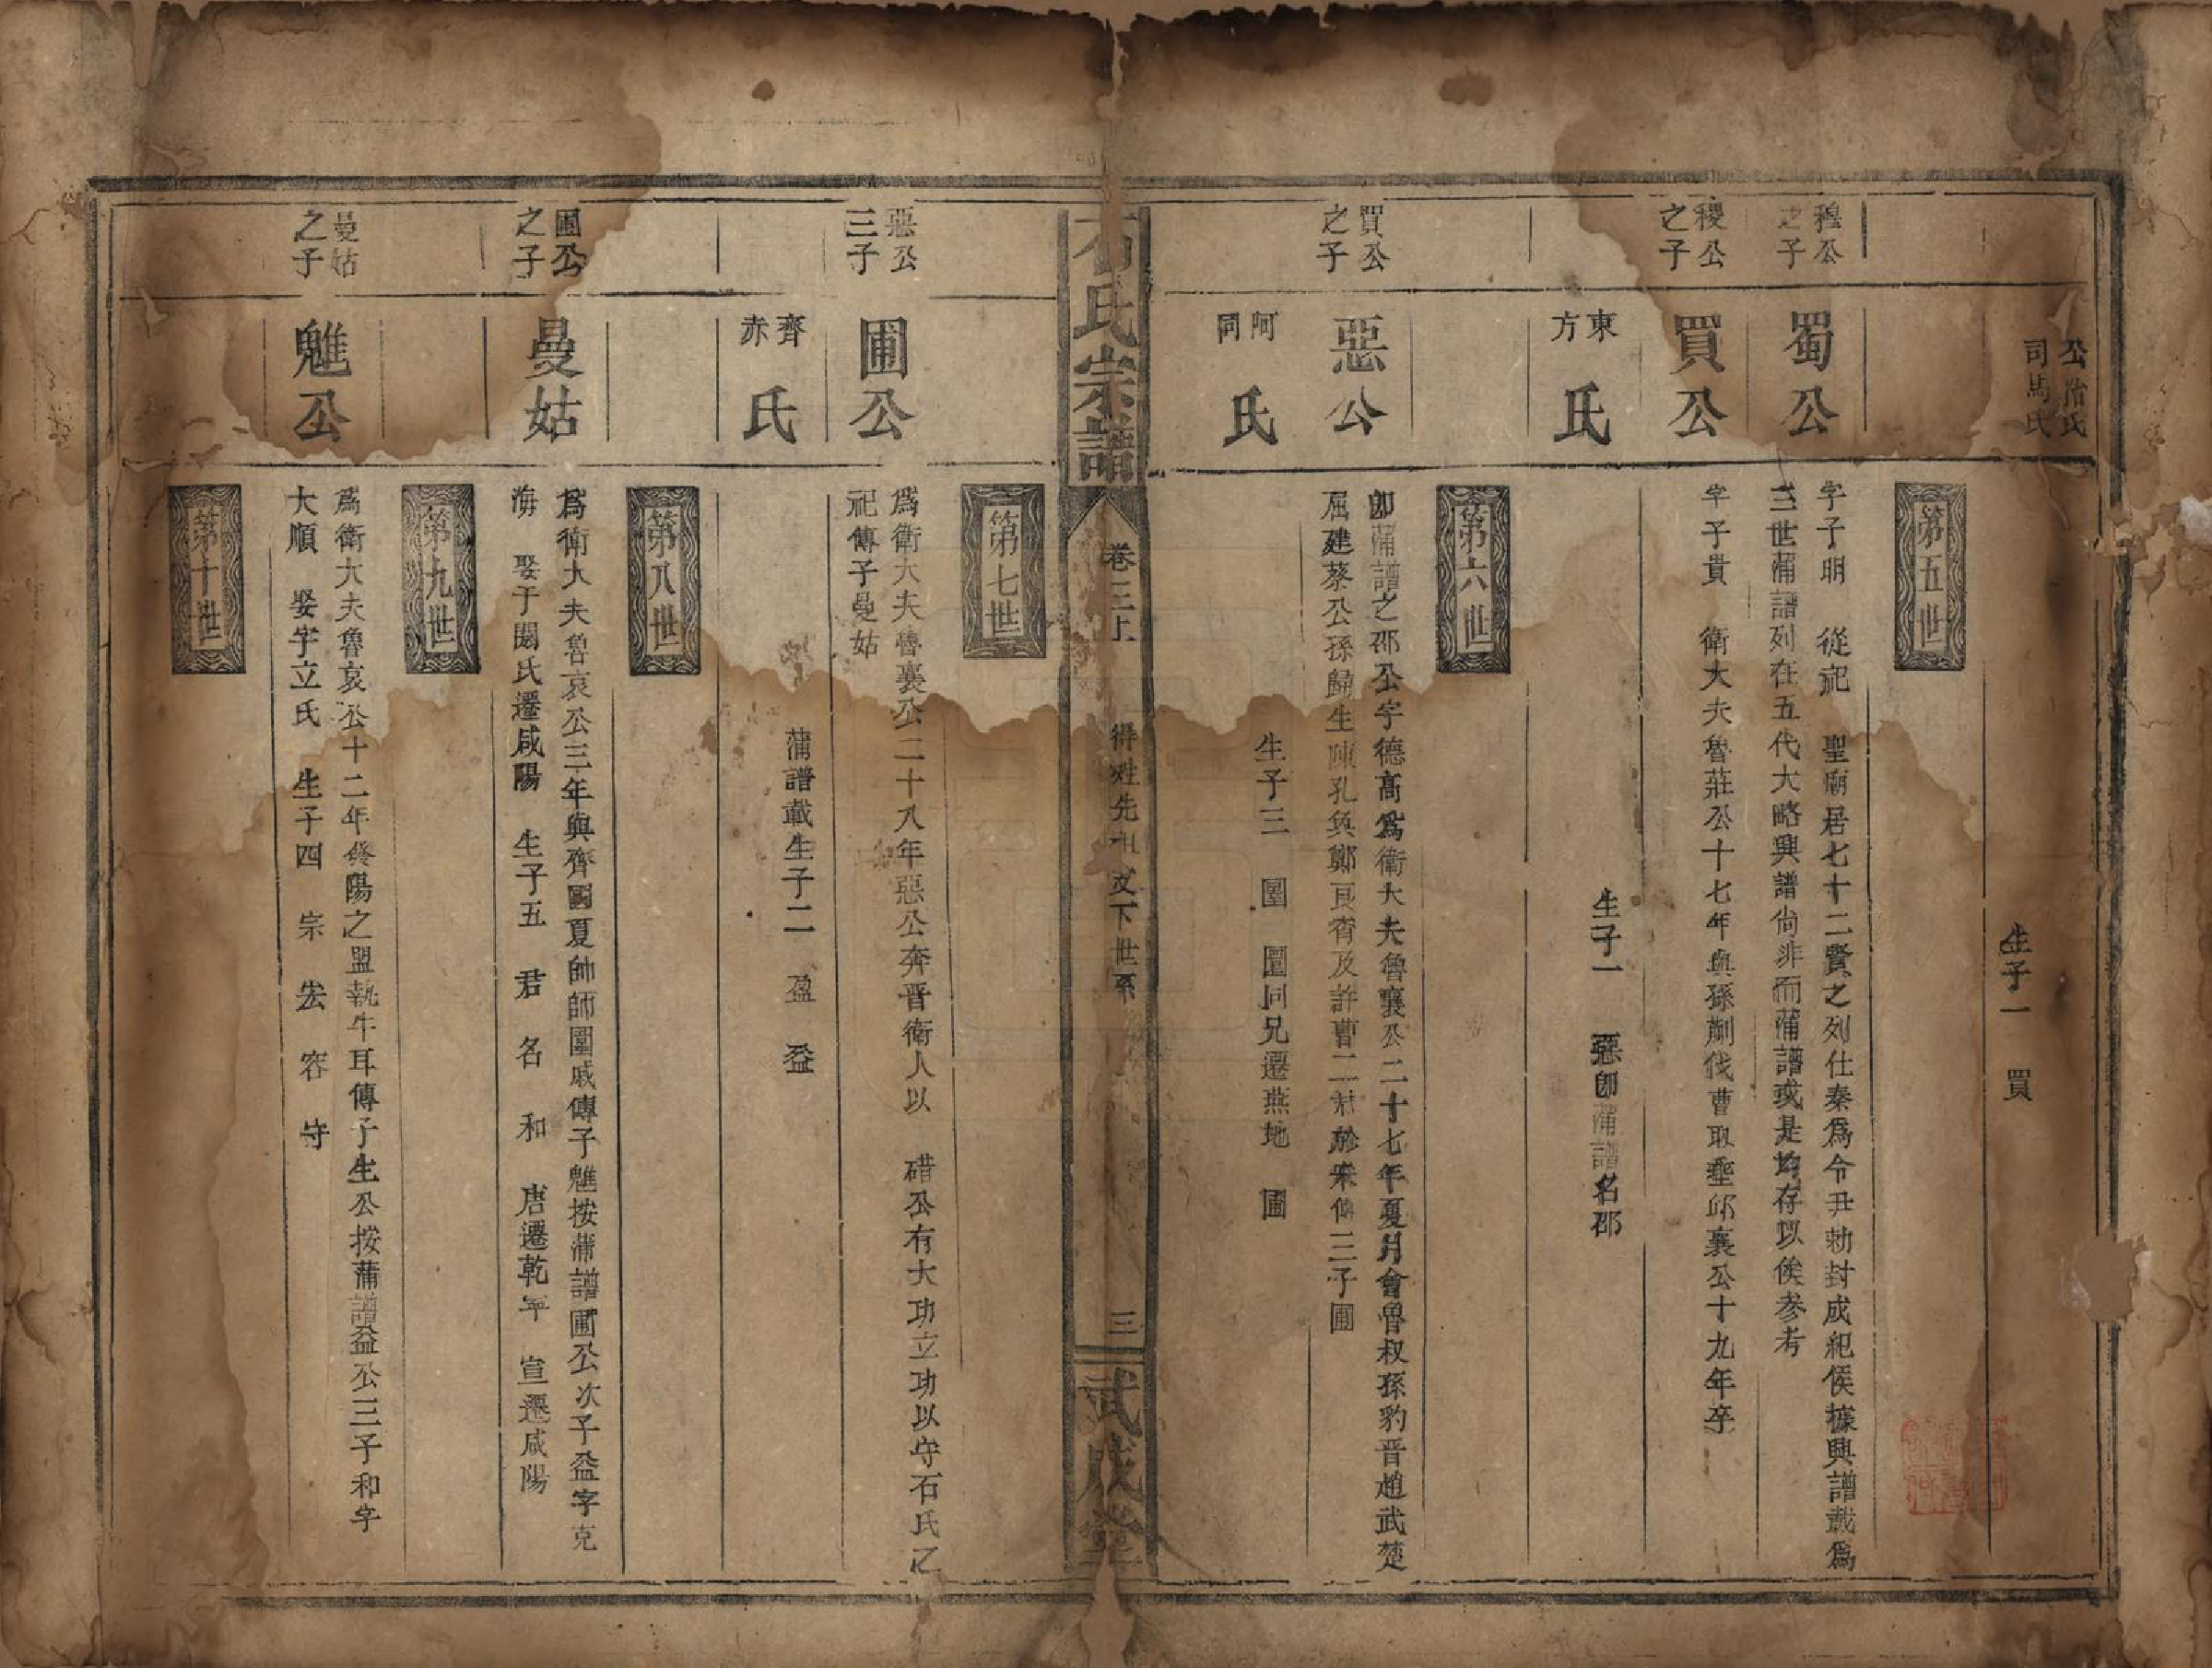 公冶氏
司馬氏
生子一　買
第五世
穆公
之子
蜀公
字子明　從祀　聖廟居七十二賢之列仕秦爲令丑勅封成紀侯據興譜載爲
三世蒲譜列在五代大略興譜尙非而蒲譜或是均存以俟參考
稷公
之子
買公
字子貴　衛大夫魯莊公十七年與孫蒯伐曹取重邱襄公十九年卒
東方
氏
生子一　惡卽蒲譜名邵
第六世
買公
之子
惡公
卽蒲譜之邵公字德高爲衛大夫魯襄公二十七年夏月會魯叔孫豹晋趙武楚
屈建蔡公孫歸生陳孔奐鄭良宵及許曹二
於宋傳三子圃
阿同
氏
生子三　圍　圕同兄遷燕地　圃
石氏宗譜
卷三上
得姓先祖文下世系
三
武成堂
第七世
惡公
三子
圃公
爲衛大夫魯襄公二十八年惡公奔晋衛人以　碏公有大功立功以守石氏之
祀傳子曼姑
齊赤
氏
蒲譜載生子二　盈　益
第八世
圃公
之子
曼姑
爲衛大夫魯哀公三年與齊國夏帥師圍戚傳子魋按蒲譜圃公次子益字克
海　娶于闕氏遷咸陽　生子五　君　名　和　唐遷乾年　宣遷咸陽
第九世
曼姑
之子
魋公
爲衛大夫魯哀公十二年發陽之盟執牛耳傳子生公按蒲譜益公三子和字
大順　娶宇立氏　生子四　宗　宏　容　守
第十世